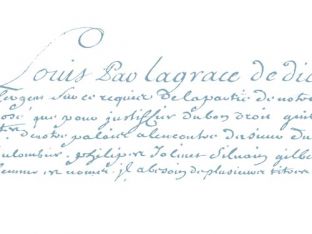 Louis Par lagrace de die
Sergens Sur ce requier De lapartie de notre
osé que pour justiffier du bon droit quil
de notre palais alencontre dasieur du
ulombier, philiper Jolinet Silvain gilber
femme en nomer. Jl abesoin de plusieurs titres